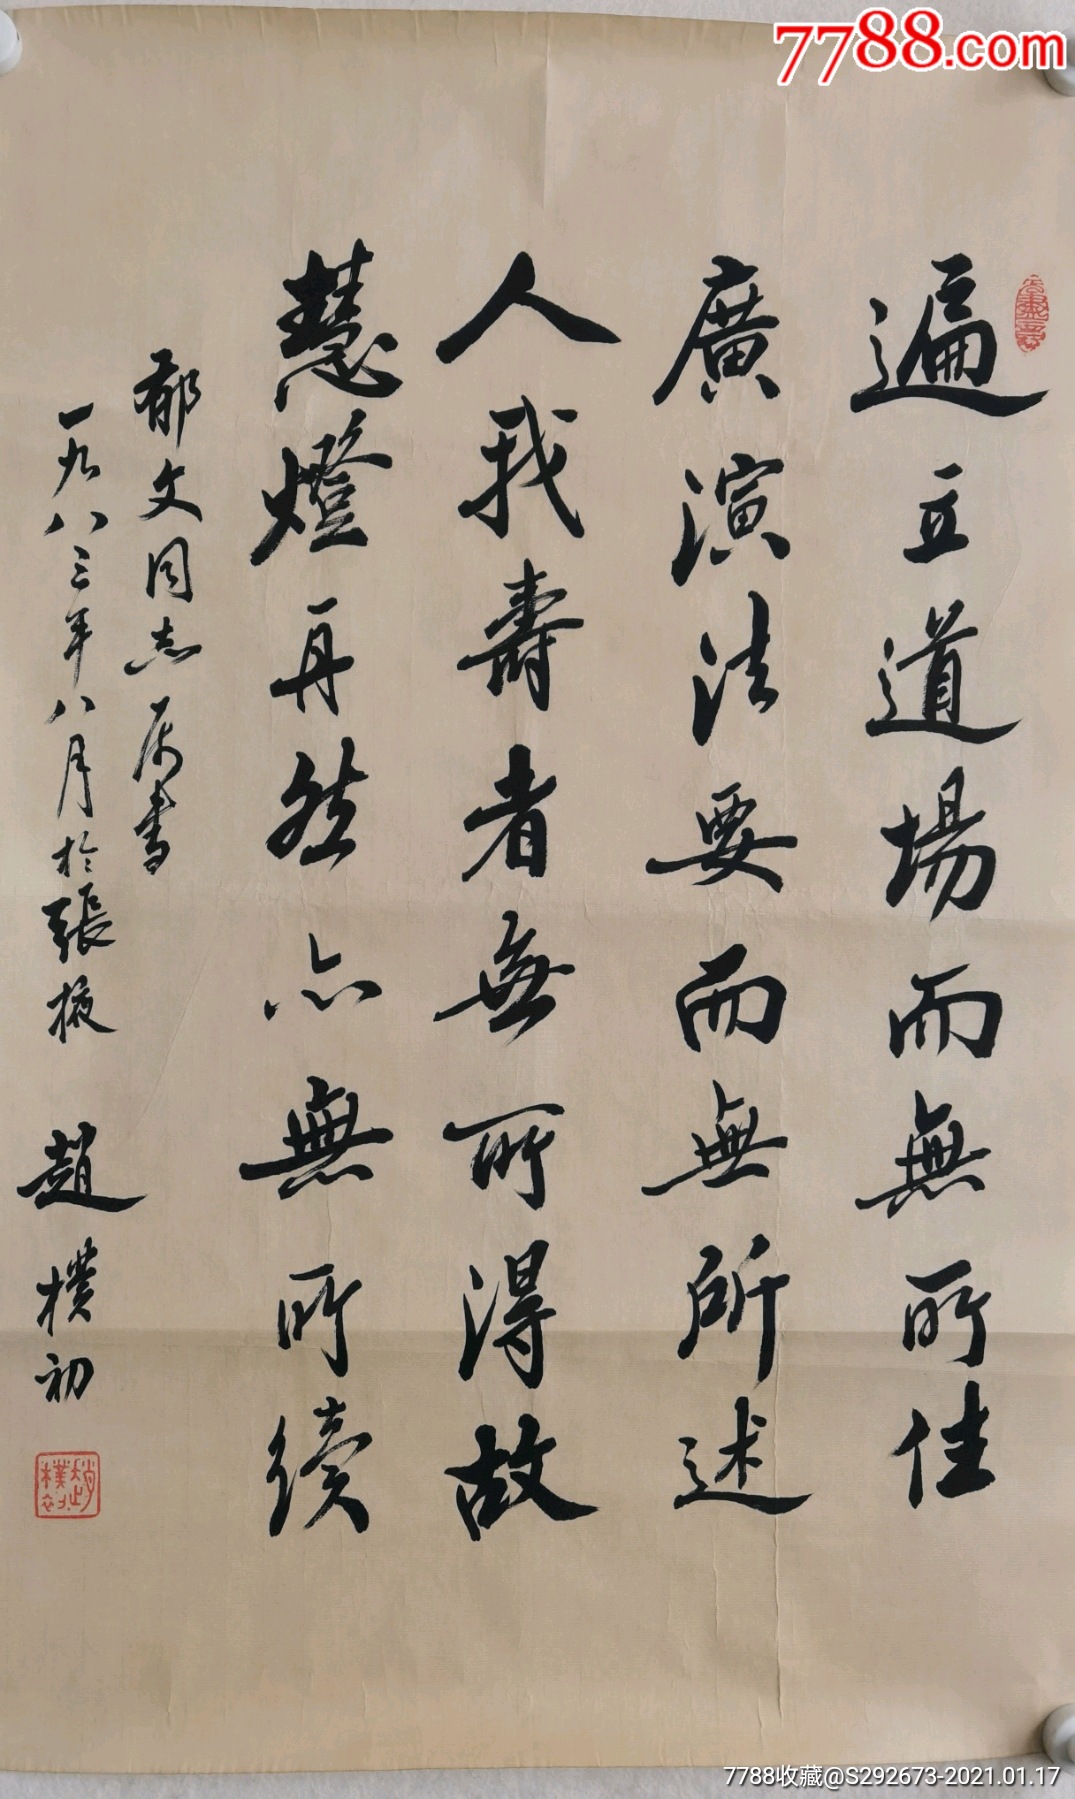 7788.com
遍立道場而無所住
廣演法要而無所述
人我壽者無所得故
慧燈再然亦無所續
郁文同志属書
一九八三年八月於張掖
趙樸初
趙樸初
7788收藏@S292673-2021.01.17